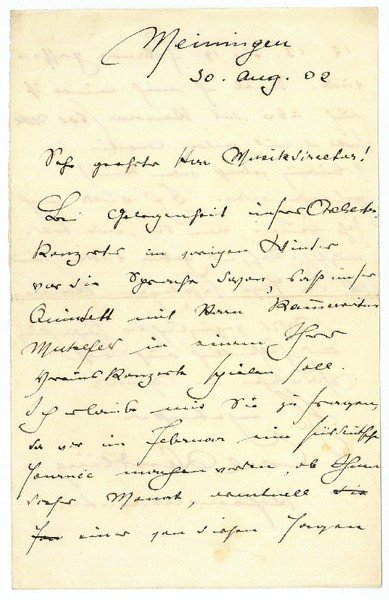 Meiningen
30. Aug. 02
Sehr geehrter Herr Musikdirector!
Bei Gelegenheit unseres
Konzertes im vorigen Winter
war die Sprache davon, daß unser
Quintett mit Herrn Kammervirtuos
Mühlfeld in einem Ihrer
Vereinskonzerte spielen soll.
Ich erlaube mir Sie zu fragen,
da wir im Februar eine süddeutsche
Tournée machen werden, ob Ihnen
dieser Monat, eventuell die
einer von diesen Tagen